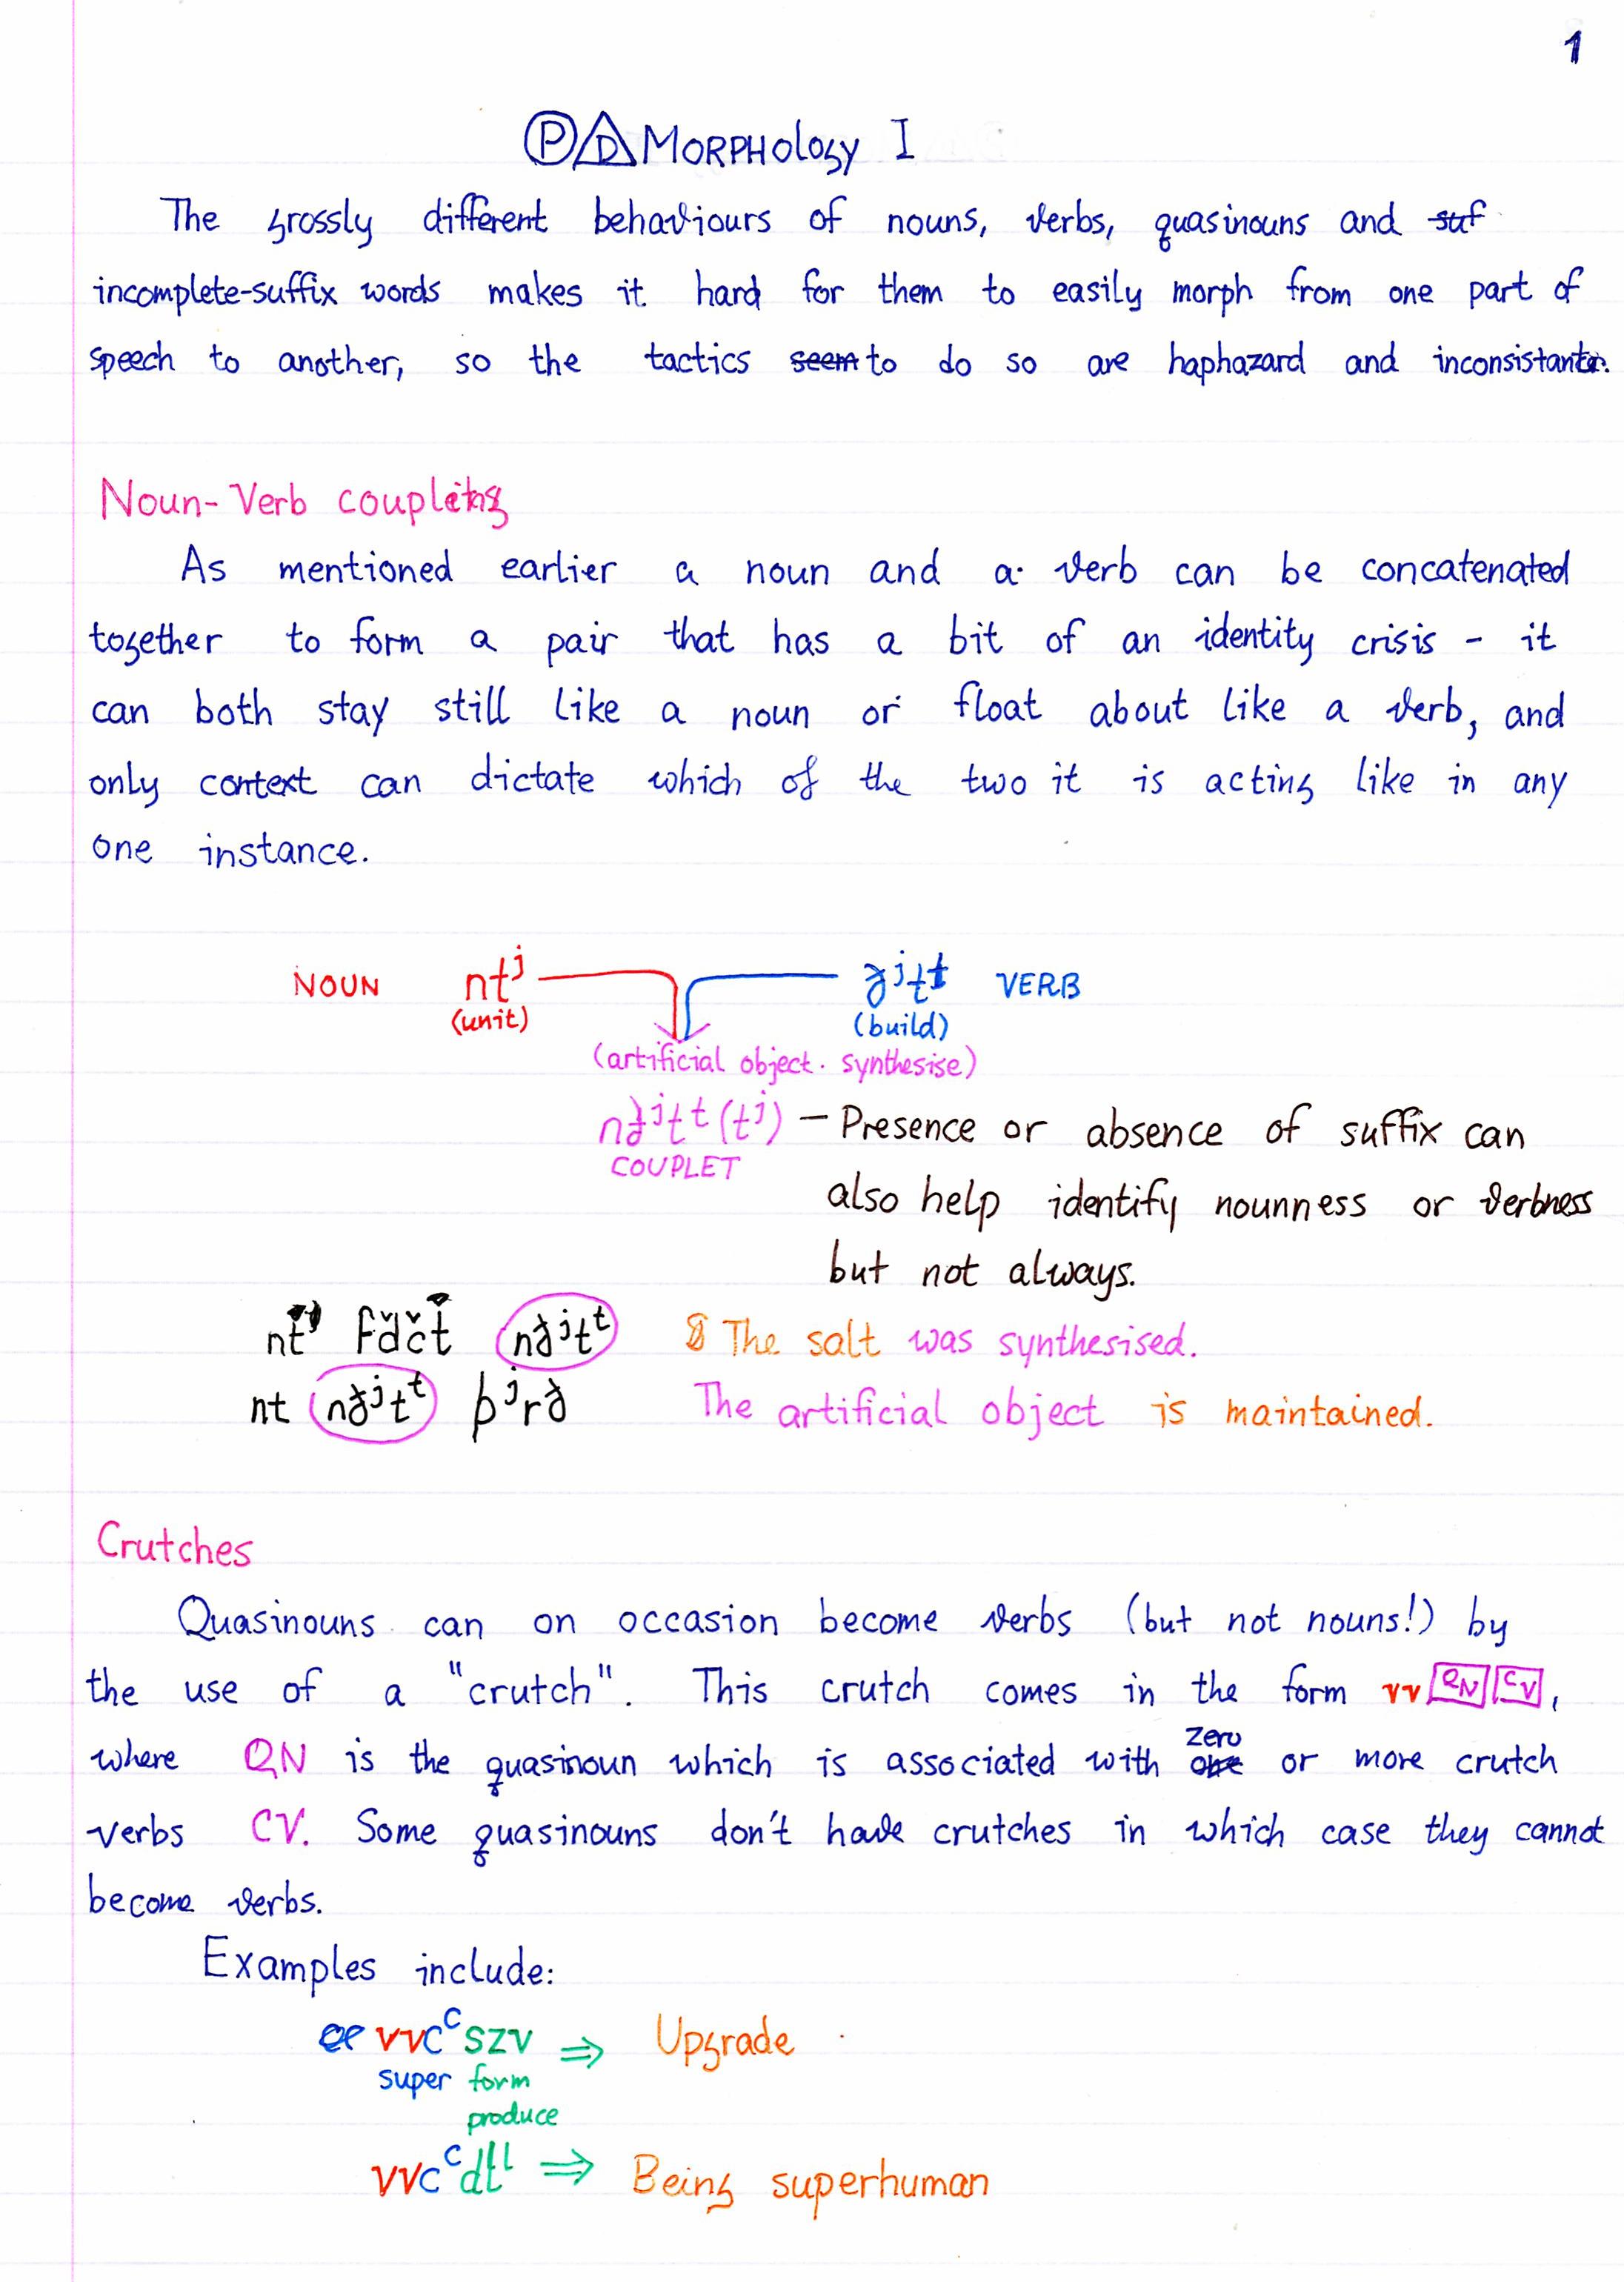 1
PD MORPHOlogy I
The grossly different behaviours of nouns, verbs, quasinouns and suf
incomplete-suffix words makes it hard for them to easily morph from one part of
speech to another, so the tactics seem to do so are haphazard and inconsistant.
Noun-Verb couplets
As mentioned earlier a noun and a verb can be concatenated
together to form a pair that has a bit of an identity crisis - it
can both stay still like a noun or float about like a verb, and
only context can dictate which of the two it is acting like in any
one instance.
NOUN ntʲ VERB
(unit) (build)
(artificial object. synthesise)
— Presence or absence of suffix can
COUPLET
also help identify nounness or verbness
but not always.
The salt was synthesised.
nt The artificial object is maintained.
Crutches
Quasinouns can on occasion become verbs (but not nouns!) by
the use of a "crutch". This crutch comes in the form vv QN CV,
where QN is the quasinoun which is associated with zero or more crutch
verbs CV. Some quasinouns don't have crutches in which case they cannot
become verbs.
Examples include:
vvcᶜszv ⇒ Upgrade
super form
produce
vvcᶜdtˡ ⇒ Being superhuman